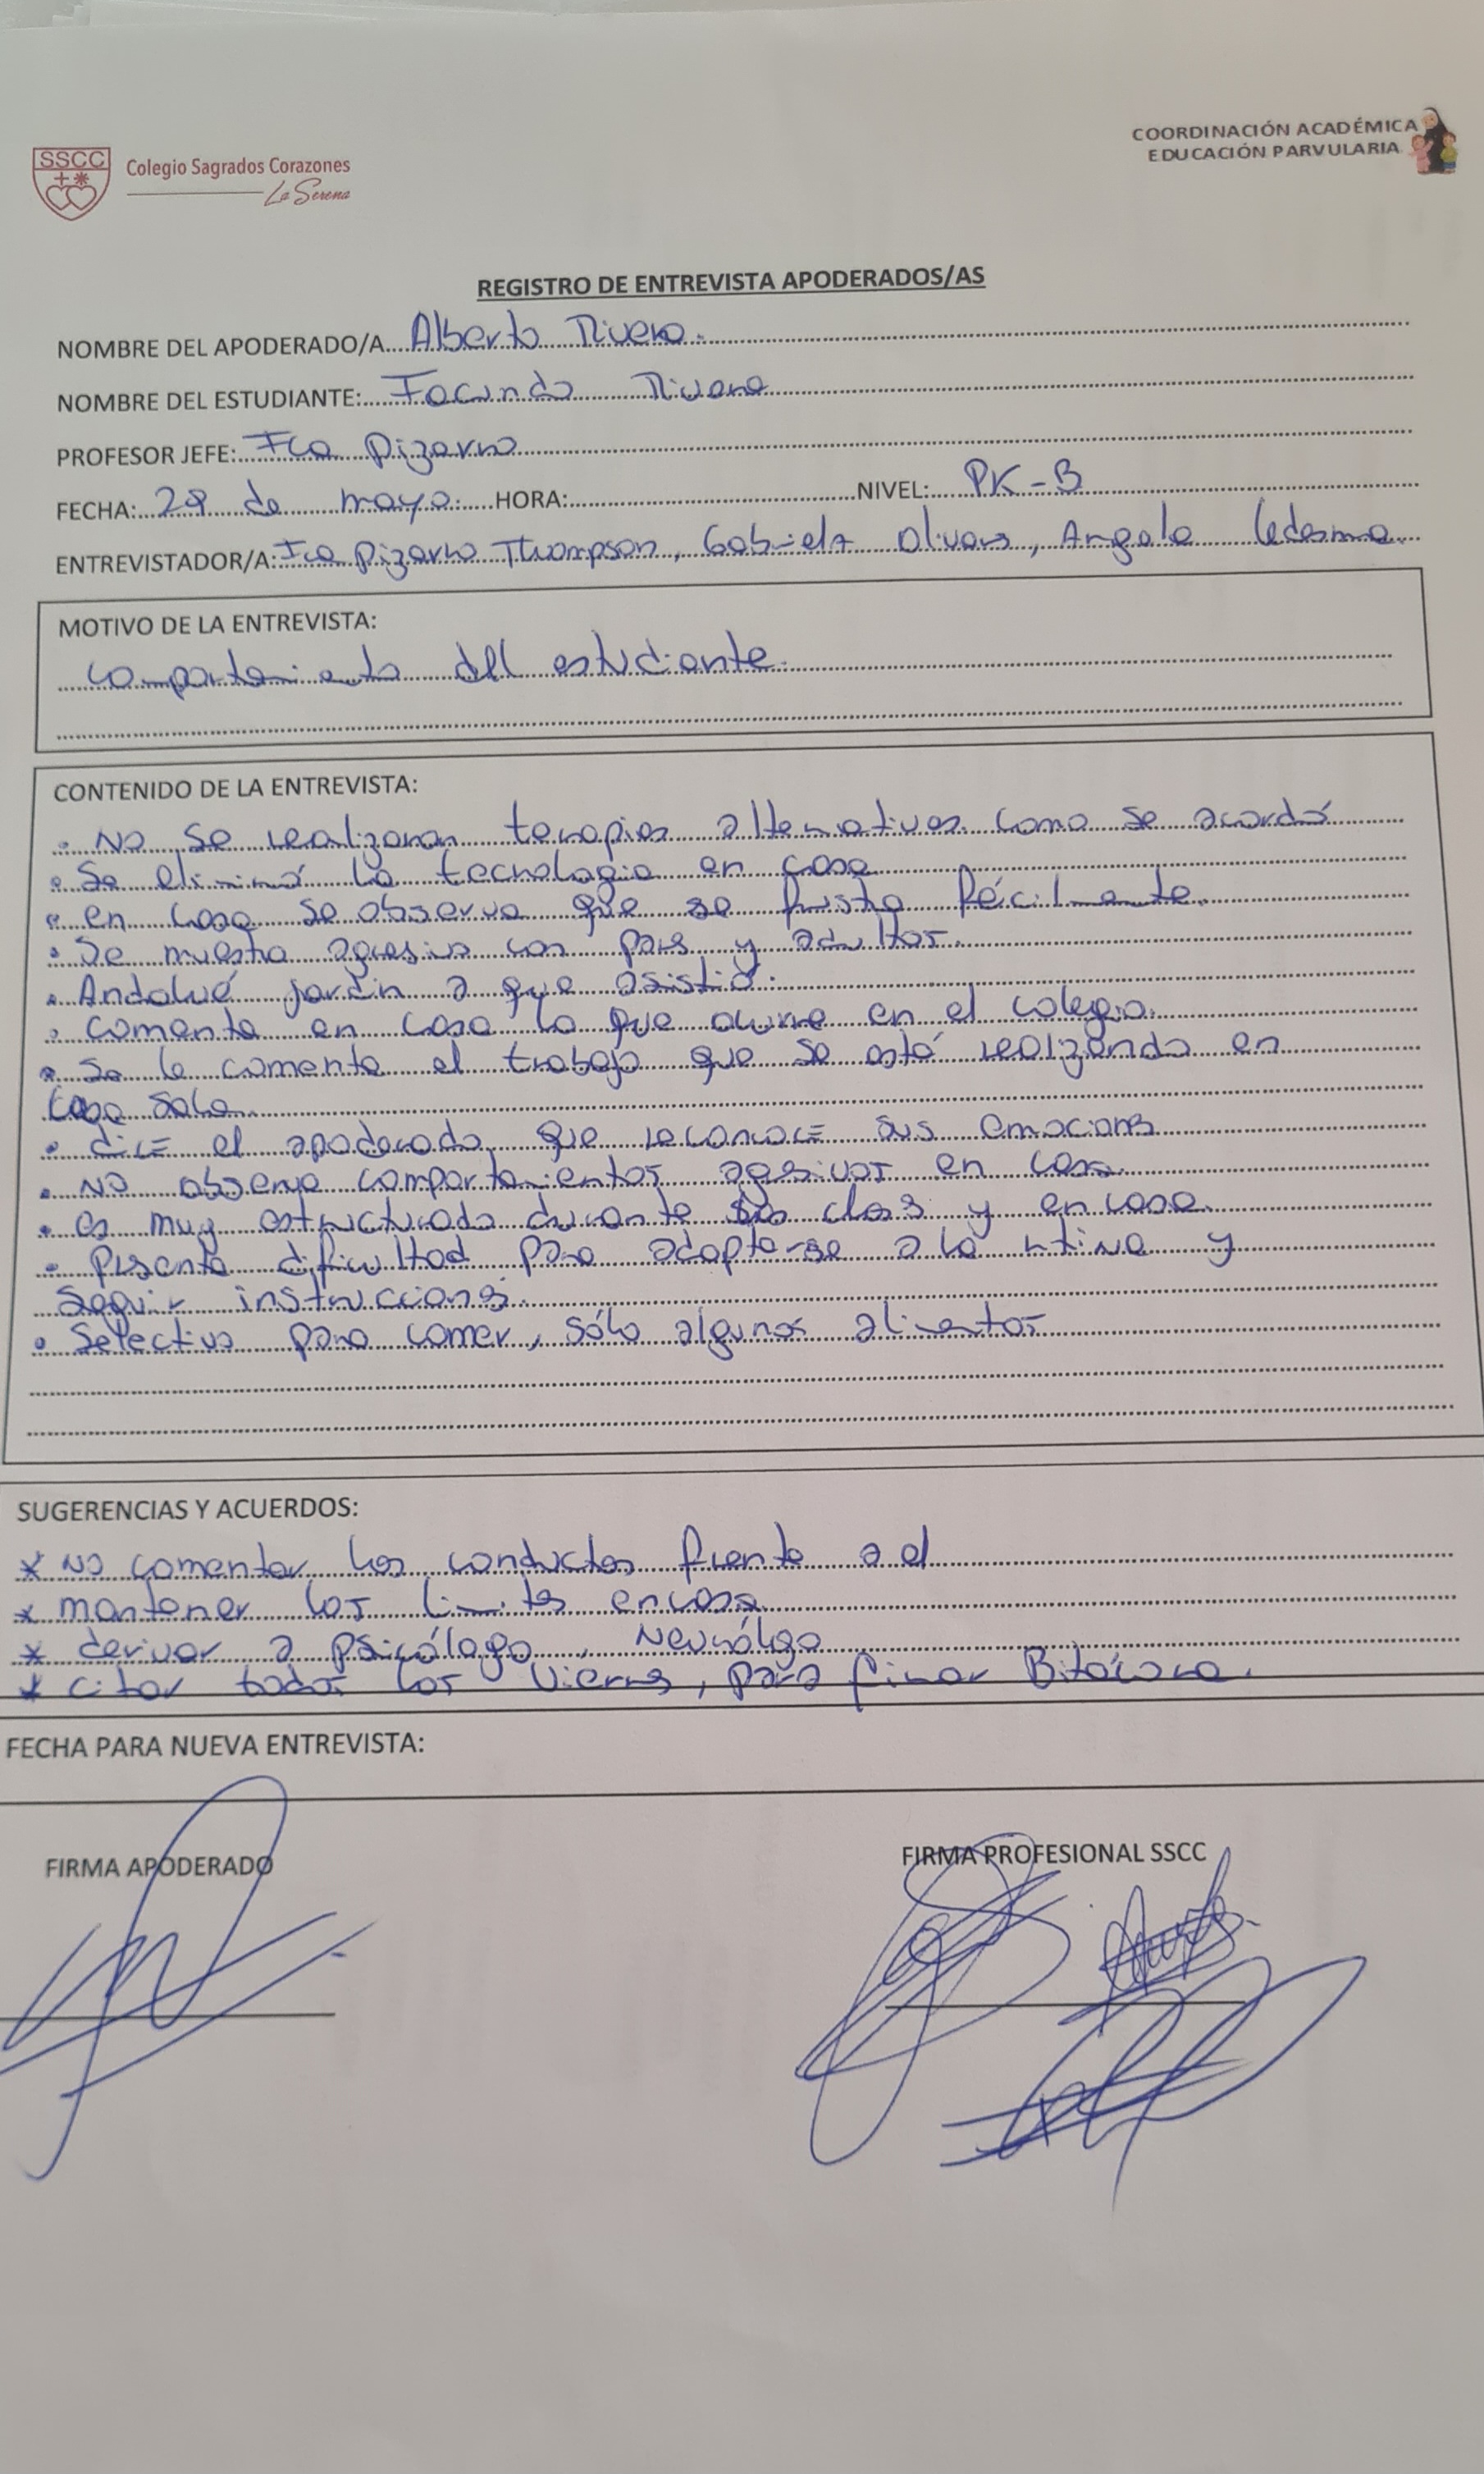 SSCC
Colegio Sagrados Corazones
La Serena
COORDINACIÓN ACADÉMICA
EDUCACIÓN PARVULARIA
REGISTRO DE ENTREVISTA APODERADOS/AS
NOMBRE DEL APODERADO/A Alberto Rivera.
NOMBRE DEL ESTUDIANTE: Facundo Rivera
PROFESOR JEFE: Fca Pizarro
FECHA: 28 de mayo. HORA: NIVEL: PK-B
ENTREVISTADOR/A: Fca Pizarro Thompson, Gabriela Olivares, Angela Ledesma
MOTIVO DE LA ENTREVISTA:
comportamiento del estudiante.
CONTENIDO DE LA ENTREVISTA:
• No se realizaran terapias alternativas como se acordó
• Se eliminó la tecnologia en casa
• en casa se observa que se frustra fácilmente.
• Se muestra agresivo con pares y adultos.
• Andalué jardin a que asistió.
• comenta en casa lo que ocurre en el colegio.
• Se le comenta el trabajo que se está realizando en
cada sala.
• dice el apoderado que reconoce sus emociones
• No observa comportamientos agesivos en casa.
• es muy estructurado durante las clases y en casa.
• Presenta dificultad para adaptarse a la rutina y
seguir instrucciones.
• Selectivo para comer, sólo algunos alimentos
SUGERENCIAS Y ACUERDOS:
* No comentar las conductas frente a el
* mantener los limites en casa
* derivar a psicólogo, Neurólgo
* citar todos los viernes, para firmar Bitácora.
FECHA PARA NUEVA ENTREVISTA:
FIRMA APODERADO FIRMA PROFESIONAL SSCC